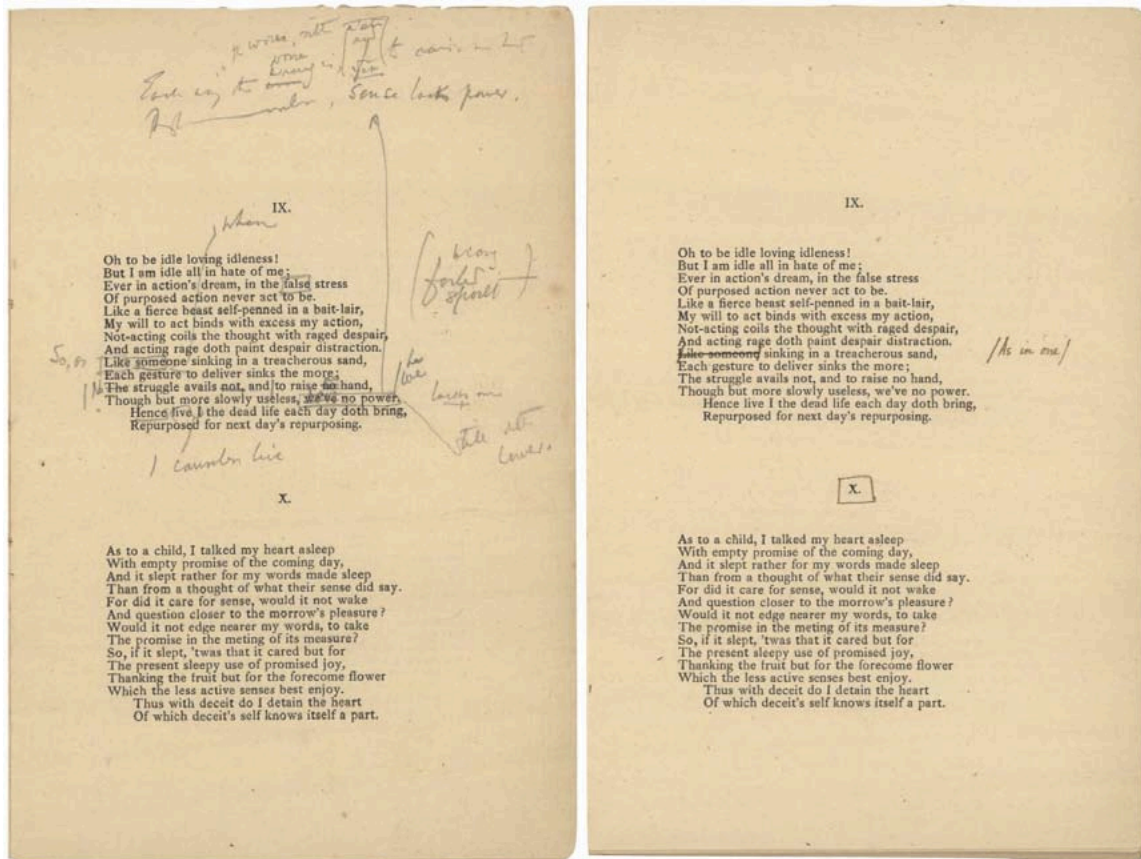 Each way the
sense lacks power.
IX.
when
Oh to be idle loving idleness!
But I am idle all in hate of me;
Ever in action's dream, in the false stress
Of purposed action never act to be.
Like a fierce beast self-penned in a bait-lair,
My will to act binds with excess my action,
Not-acting coils the thought with raged despair,
And acting rage doth paint despair distraction.
So, as
Like someone sinking in a treacherous sand,
Each gesture to deliver sinks the more;
The struggle avails not, and to raise no hand,
Though but more slowly useless, we've no power.
Hence live I the dead life each day doth bring,
Repurposed for next day's repurposing.
X.
As to a child, I talked my heart asleep
With empty promise of the coming day,
And it slept rather for my words made sleep
Than from a thought of what their sense did say.
For did it care for sense, would it not wake
And question closer to the morrow's pleasure?
Would it not edge nearer my words, to take
The promise in the meting of its measure?
So, if it slept, 'twas that it cared but for
The present sleepy use of promised joy,
Thanking the fruit but for the forecome flower
Which the less active senses best enjoy.
Thus with deceit do I detain the heart
Of which deceit's self knows itself a part.
IX.
Oh to be idle loving idleness!
But I am idle all in hate of me;
Ever in action's dream, in the false stress
Of purposed action never act to be.
Like a fierce beast self-penned in a bait-lair,
My will to act binds with excess my action,
Not-acting coils the thought with raged despair,
And acting rage doth paint despair distraction.
Like someone sinking in a treacherous sand, /As in one/
Each gesture to deliver sinks the more;
The struggle avails not, and to raise no hand,
Though but more slowly useless, we've no power.
Hence live I the dead life each day doth bring,
Repurposed for next day's repurposing.
X.
As to a child, I talked my heart asleep
With empty promise of the coming day,
And it slept rather for my words made sleep
Than from a thought of what their sense did say.
For did it care for sense, would it not wake
And question closer to the morrow's pleasure?
Would it not edge nearer my words, to take
The promise in the meting of its measure?
So, if it slept, 'twas that it cared but for
The present sleepy use of promised joy,
Thanking the fruit but for the forecome flower
Which the less active senses best enjoy.
Thus with deceit do I detain the heart
Of which deceit's self knows itself a part.